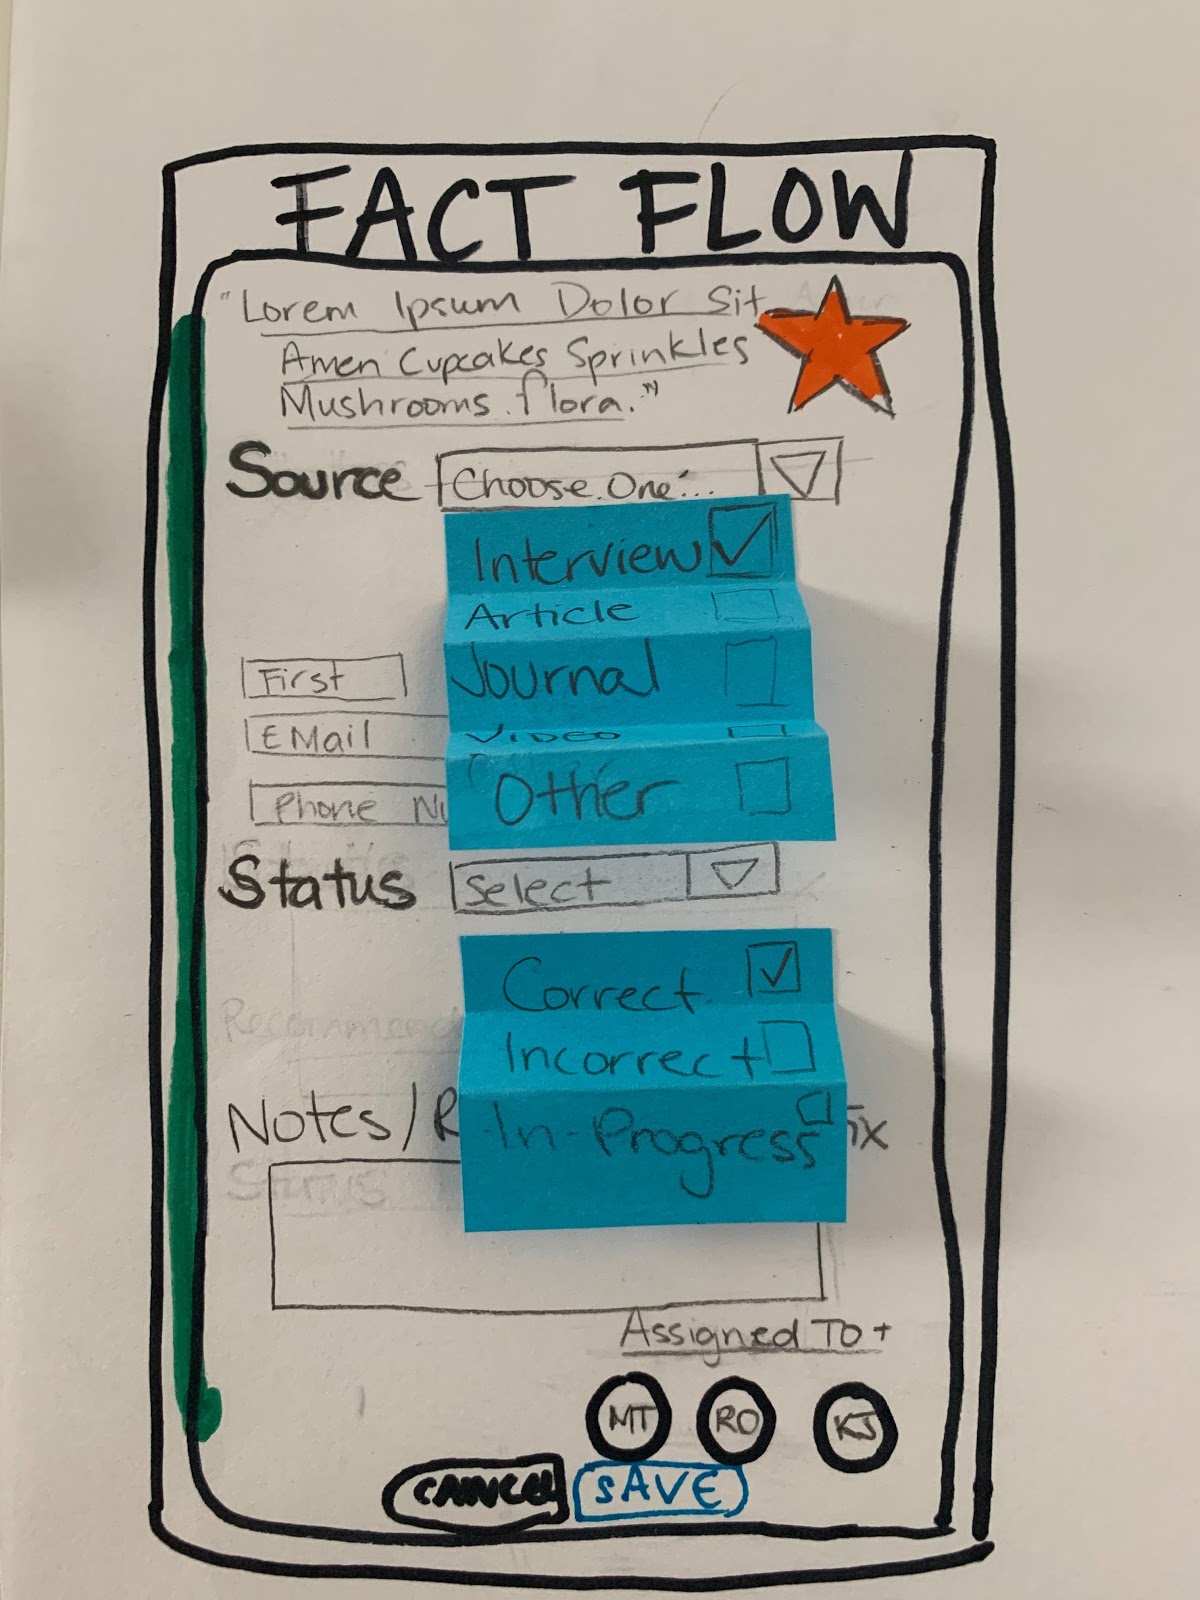 FACT FLOW
"Lorem Ipsum Dolor Sit
Amen Cupcakes Sprinkles
Mushrooms. flora."
Source Choose One...
Interview
Article
Journal
Video
Other
First
EMail
Phone
Status Select
Correct
Incorrect
In-Progress
Notes/
Status
Assigned To +
MT RO KJ
CANCEL SAVE